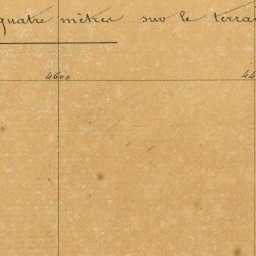 quatre mètres sur le terrai
4600
44